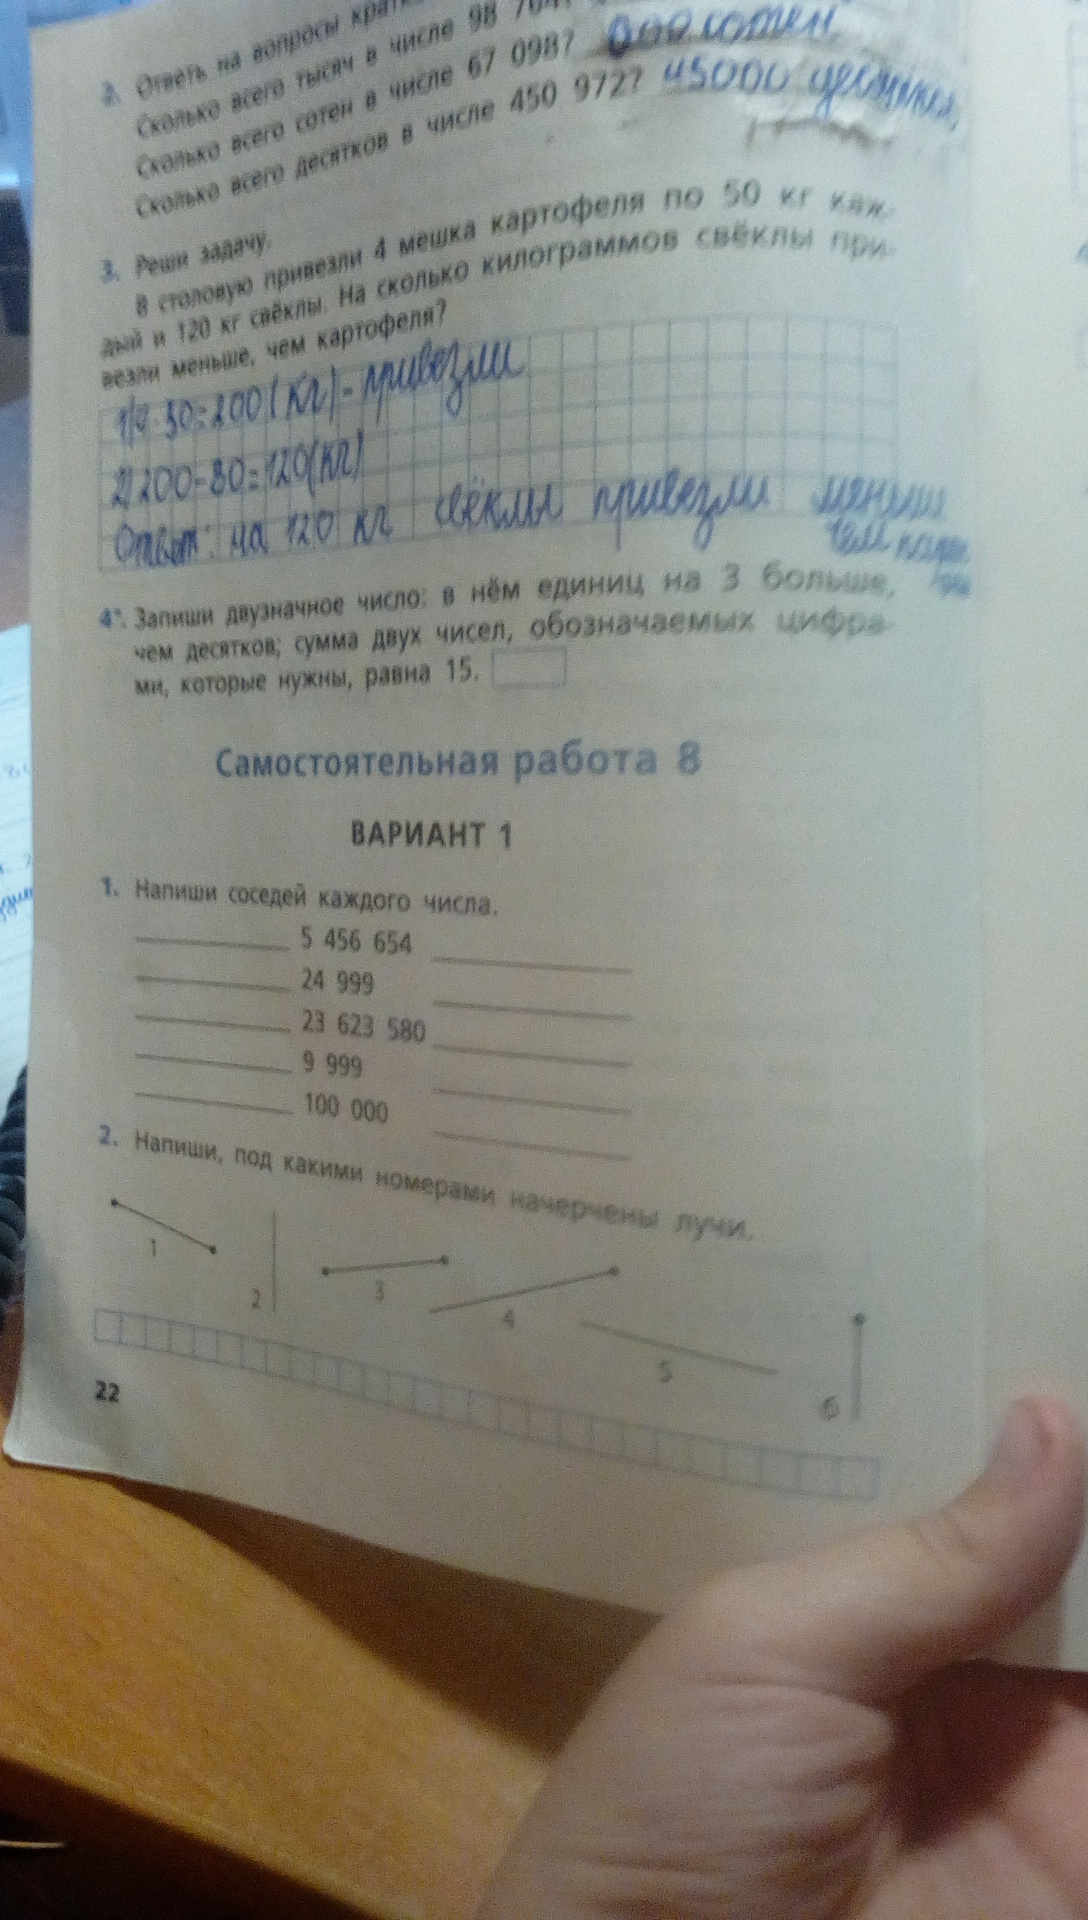 2. Ответь на вопросы
Сколько всего тысяч в числе 98
Сколько всего сотен в числе 67 098? сотен
Сколько всего десятков в числе 450 972? 45000
3. Реши задачу.
В столовую привезли 4 мешка картофеля по 50 кг каж-
дый и 120 кг свёклы. На сколько килограммов свёклы при-
везли меньше, чем картофеля?
1) 4·50=200(кг)-привезли
2) 200-80=120(кг)
Ответ: на 120 кг свёклы привезли меньше
чем
4*. Запиши двузначное число: в нём единиц на 3 больше,
чем десятков; сумма двух чисел, обозначаемых цифра-
ми, которые нужны, равна 15.
Самостоятельная работа 8
ВАРИАНТ 1
1. Напиши соседей каждого числа.
5 456 654
24 999
23 623 580
9 999
100 000
2. Напиши, под какими номерами начерчены лучи.
1 2 3 4 5 6
22